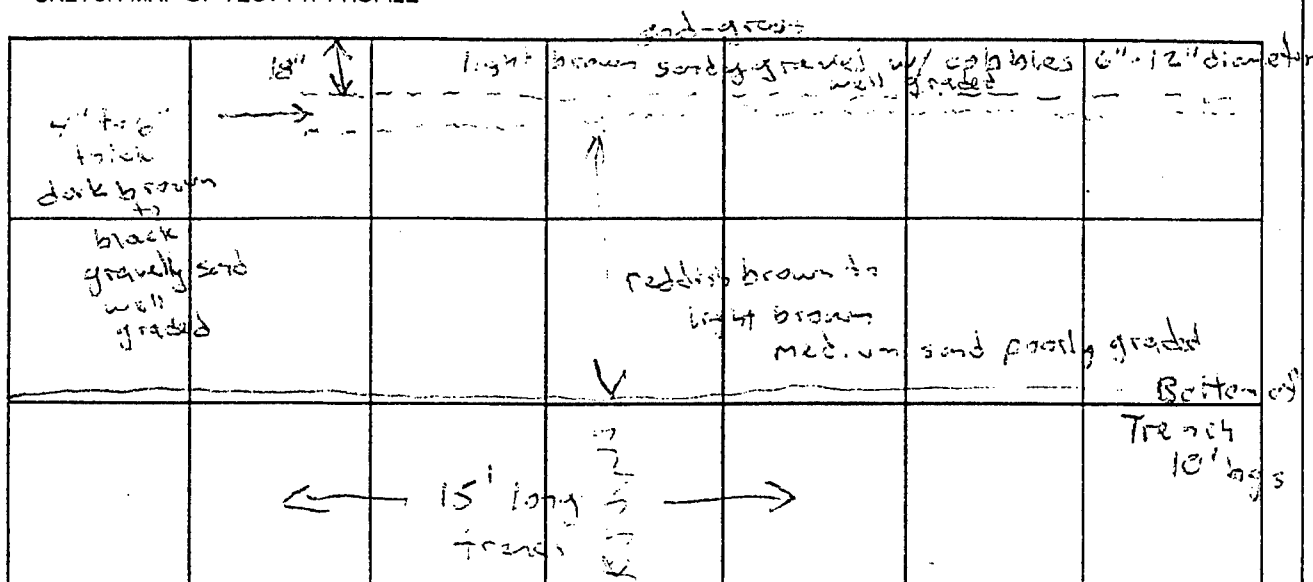 SKETCH MAP OF TEST PIT PROFILE
18"
light brown sandy gravel w/ cobbles 6"-12" diameter
well graded
4" to 6"
thick
dark brown
to
black
gravelly sand
well
graded
reddish brown to
light brown
medium sand poorly graded
Bottom of
Trench
10' bgs
15' long
trench